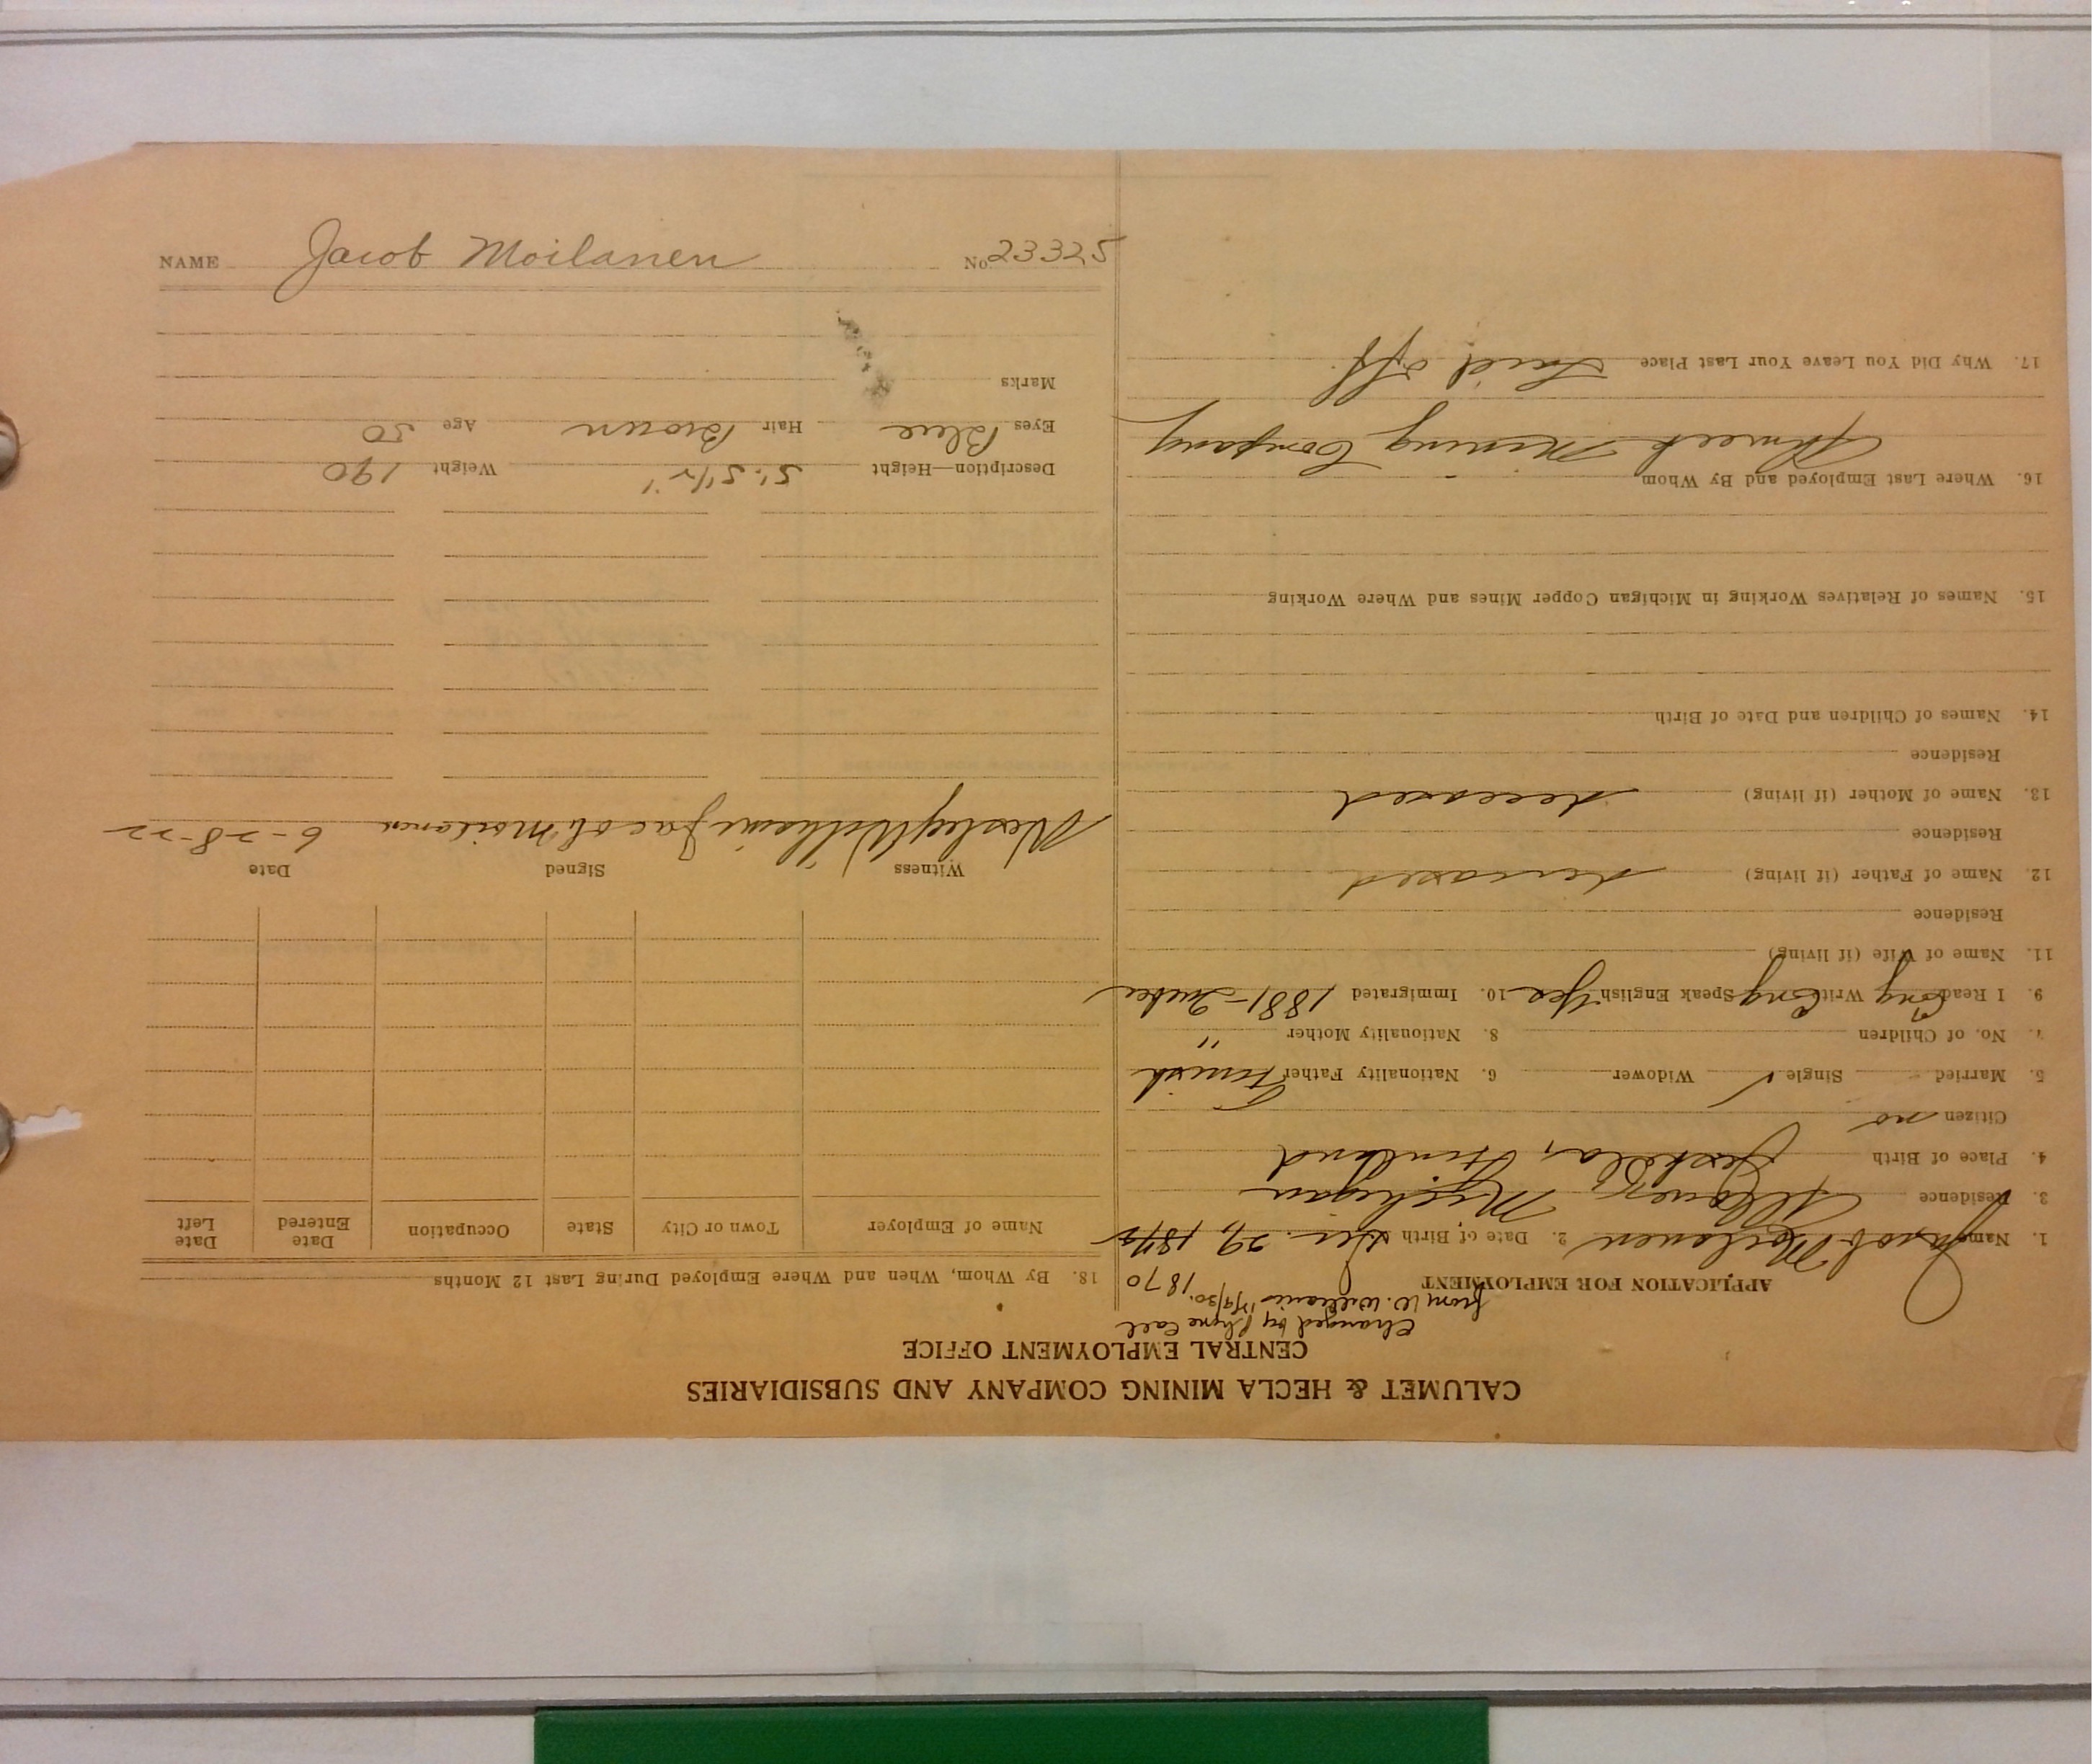 NAME Jacob Moilanen No 23325
CALUMET & HECLA MINING COMPANY AND SUBSIDIARIES
CENTRAL EMPLOYMENT OFFICE
Changed by Phone Call
from W. Williams
1870
APPLICATION FOR EMPLOYMENT
1. Name Jacob Moilanen 2. Date of Birth 29,
3. Residence Allouez Michigan
4. Place of Birth Finland
Citizen no
5. Married Single ✓ Widower 6. Nationality Father Finnish
7. No. of Children 8. Nationality Mother "
9. I Read Eng Write Eng Speak English Yes 10. Immigrated 1881-
11. Name of Wife (if living)
Residence
12. Name of Father (if living) deceased
Residence
13. Name of Mother (if living) deceased
Residence
14. Names of Children and Date of Birth
15. Names of Relatives Working in Michigan Copper Mines and Where Working
16. Where Last Employed and By Whom
Ahmeek Mining Company
17. Why Did You Leave Your Last Place Laid off
18. By Whom, When and Where Employed During Last 12 Months
Name of Employer Town or City State Occupation Date Entered Date Left
Witness Signed Date
Wesley Williams Jacob Moilanen 6-28-22
Description—Height 5' 5 1/2" Weight 190
Eyes Blue Hair Brown Age 50
Marks